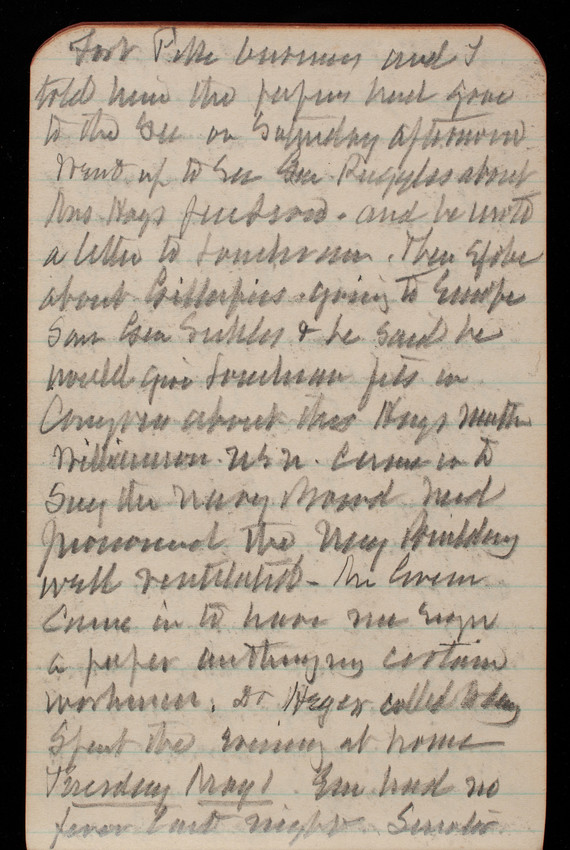 Fort Pike business and I
told him the papers had gone
to the Sec on Saturday afternoon
Went up to See Gen Ruggles about
Mrs Hays husband. and he wrote
a letter to . Then spoke
about Gillespies going to Europe
Saw Gen Sickles & he said he
would give fits in
Congress about this Hays matter
Williamson. U.S.N. came in to
Say the Navy Board had
pronounced the Navy Building
well ventilated - Mr
Came in to have me sign
a paper authorizing certain
workmen. Dr Heger called to day
Spent the evening at home
Tuesday May 1. Em had no
fever last night. Senator